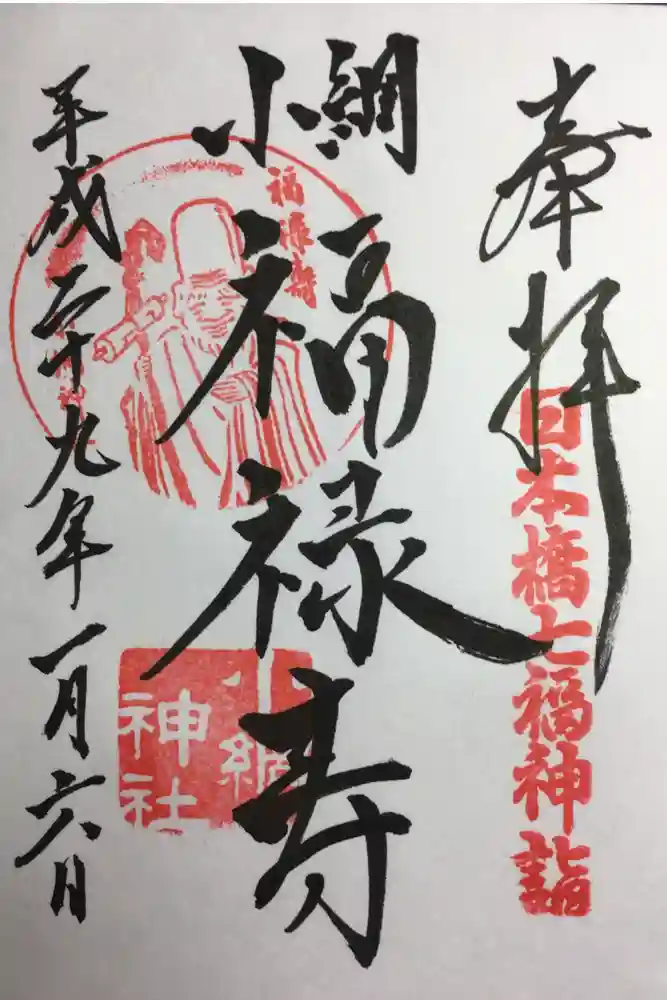 奉拝
日本橋七福神詣
小網
福禄寿
福禄壽
小網
神社
平成二十九年一月六日